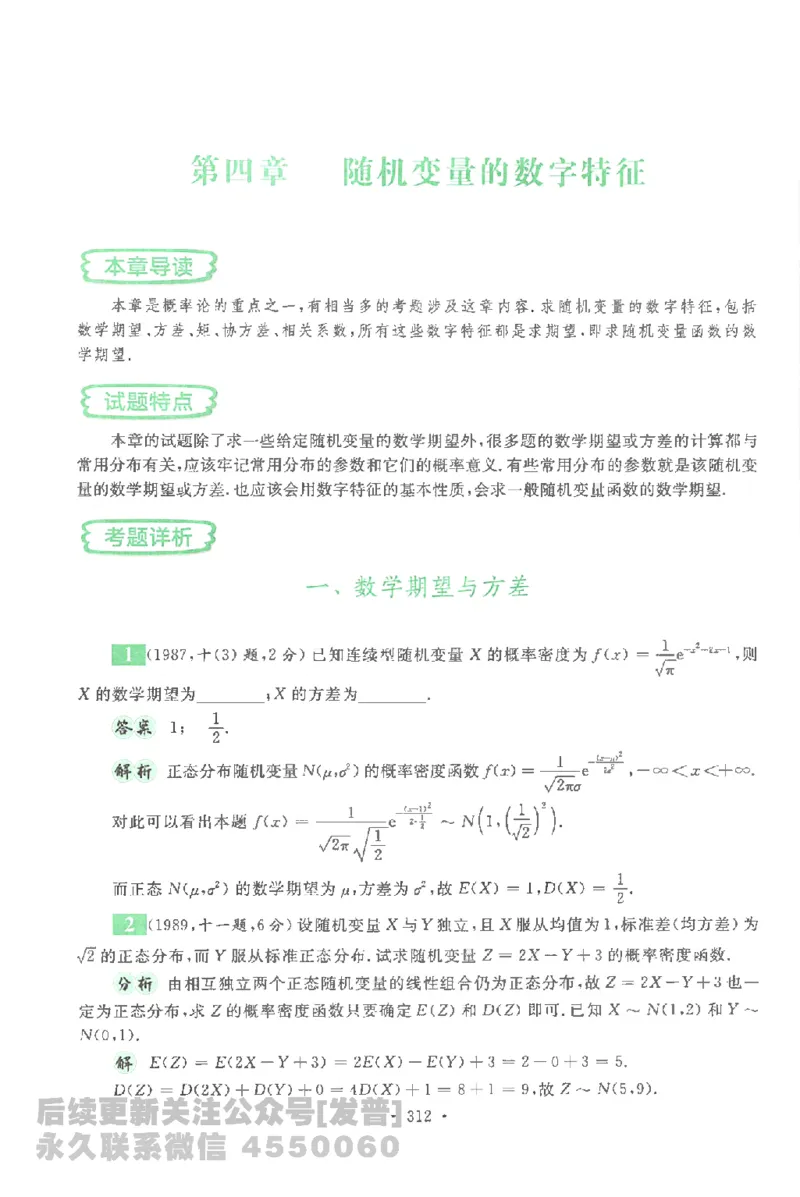 第四章 随机变量的数字特征
本章导读
本章是概率论的重点之一,有相当多的考题涉及这章内容.求随机变量的数字特征,包括
数学期望、方差、矩、协方差、相关系数,所有这些数字特征都是求期望,即求随机变量函数的数
学期望.
试题特点
本章的试题除了求一些给定随机变量的数学期望外,很多题的数学期望或方差的计算都与
常用分布有关,应该牢记常用分布的参数和它们的概率意义.有些常用分布的参数就是该随机变
量的数学期望或方差.也应该会用数字特征的基本性质,会求一般随机变量函数的数学期望.
考题详析
一、数学期望与方差
1 (1987,十(3)题,2分)已知连续型随机变量 X 的概率密度为 f(x) = \frac{1}{\sqrt{π}}e^{-x^2-2x-1},则
X 的数学期望为________;X 的方差为________.
答案 1; \frac{1}{2}.
解析 正态分布随机变量 N(μ,σ²)的概率密度函数 f(x) = \frac{1}{\sqrt{2π}σ}e^{-\frac{(x-μ)^2}{2σ^2}},-∞<x<+∞.
对此可以看出本题 f(x) = \frac{1}{\sqrt{2π}\sqrt{\frac{1}{2}}}e^{-\frac{(x-1)^2}{2·\frac{1}{2}}} ~ N(1,(\frac{1}{\sqrt{2}})^2).
而正态 N(μ,σ²)的数学期望为 μ,方差为 σ²,故 E(X) = 1,D(X) = \frac{1}{2}.
2 (1989,十一题,6分)设随机变量 X 与 Y 独立,且 X 服从均值为1,标准差(均方差)为
√2 的正态分布,而 Y 服从标准正态分布.试求随机变量 Z = 2X-Y+3 的概率密度函数.
分析 由相互独立两个正态随机变量的线性组合仍为正态分布,故 Z = 2X-Y+3 也一
定为正态分布,求 Z 的概率密度函数只要确定 E(Z) 和 D(Z) 即可.已知 X ~ N(1,2) 和 Y ~
N(0,1).
解 E(Z) = E(2X-Y+3) = 2E(X)-E(Y)+3 = 2-0+3 = 5.
D(Z) = D(2X)+D(Y)+0 = 4D(X)+1 = 8+1 = 9,故 Z ~ N(5,9).
后续更新关注公众号[发普]
· 312 ·
永久联系微信 4550060